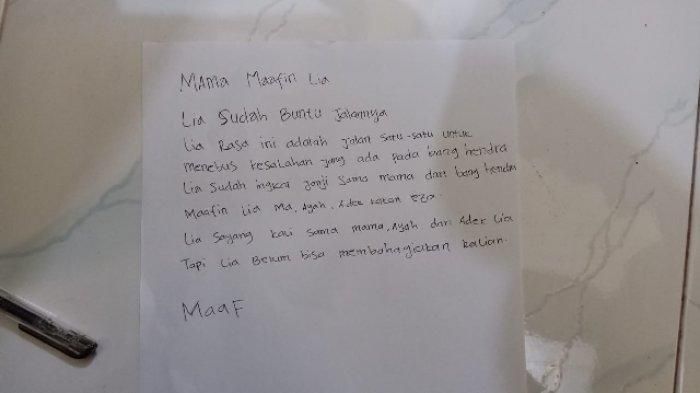 MAMA Maafin Lia
Lia Sudah Buntu Jalannya
Lia Rasa ini adalah jalan satu-satu untuk
menebus kesalahan yang ada pada bang hendra
Lia Sudah ingkar janji sama mama dan bang hendra
Maafin Lia Ma, Ayah, Adek
Lia Sayang kali sama mama, Ayah dan Adek Lia
Tapi Lia Belum bisa membahagiakan kalian.
MaaF